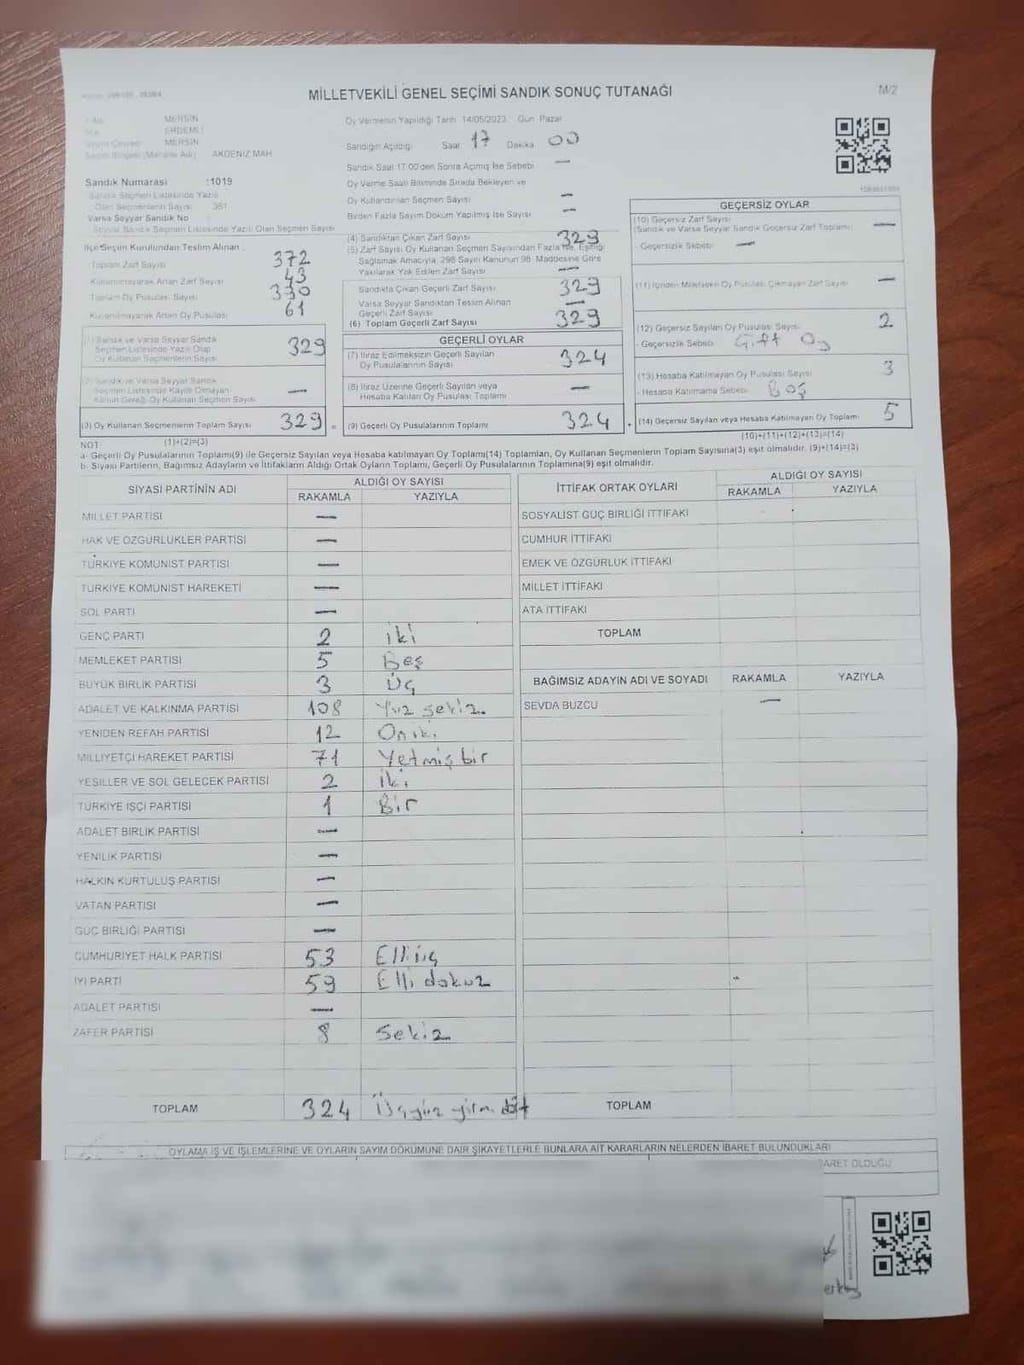 MİLLETVEKİLİ GENEL SEÇİMİ SANDIK SONUÇ TUTANAĞI
M/2
MERSİN
ERDEMLİ
MERSİN
AKDENİZ MAH
Sandık Numarası :1019
Sandık Seçmen Listesinde Yazılı
Olan Seçmenlerin Sayısı 381
Varsa Seyyar Sandık No
Seyyar Sandık Seçmen Listesinde Yazılı Olan Seçmen Sayısı
Oy Vermenin Yapıldığı Tarih 14/05/2023 Gün Pazar
Sandığın Açıldığı Saat 17 Dakika 00
Sandık Saat 17:00'den Sonra Açılmış İse Sebebi —
Oy Verme Saati Bitiminde Sırada Bekleyen ve
Oy Kullandırılan Seçmen Sayısı —
Birden Fazla Sayım Döküm Yapılmış İse Sayısı —
İlçe Seçim Kurulundan Teslim Alınan
Toplam Zarf Sayısı 372
Kullanılmayarak Artan Zarf Sayısı 43
Toplam Oy Pusulası Sayısı 390
Kullanılmayarak Artan Oy Pusulası 61
(1) Sandık ve Varsa Seyyar Sandık
Seçmen Listesinde Yazılı Olup
Oy Kullanan Seçmenlerin Sayısı 329
(2) Sandık ve Varsa Seyyar Sandık
Seçmen Listesinde Kayıtlı Olmayan
Kanun Gereği Oy Kullanan Seçmen Sayısı —
(3) Oy Kullanan Seçmenlerin Toplam Sayısı 329
(1)+(2)=(3)
(4) Sandıktan Çıkan Zarf Sayısı 329
(5) Zarf Sayısı Oy Kullanan Seçmen Sayısından Fazla İse, Eşitliği
Sağlamak Amacıyla, 298 Sayılı Kanunun 98. Maddesine Göre
Yakılarak Yok Edilen Zarf Sayısı —
Sandıkta Çıkan Geçerli Zarf Sayısı 329
Varsa Seyyar Sandıktan Teslim Alınan
Geçerli Zarf Sayısı —
(6) Toplam Geçerli Zarf Sayısı 329
GEÇERLİ OYLAR
(7) İtiraz Edilmeksizin Geçerli Sayılan
Oy Pusulalarının Toplamı 324
(8) İtiraz Üzerine Geçerli Sayılan veya
Hesaba Katılan Oy Pusulası Toplamı —
(9) Geçerli Oy Pusulalarının Toplamı 324
GEÇERSİZ OYLAR
(10) Geçersiz Zarf Sayısı
(Sandık ve Varsa Seyyar Sandık Geçersiz Zarf Toplamı) —
- Geçersizlik Sebebi —
(11) İçinden Milletvekili Oy Pusulası Çıkmayan Zarf Sayısı —
(12) Geçersiz Sayılan Oy Pusulası Sayısı 2
- Geçersizlik Sebebi Çift Oy
(13) Hesaba Katılmayan Oy Pusulası Sayısı 3
- Hesaba Katılmama Sebebi Boş
(14) Geçersiz Sayılan veya Hesaba Katılmayan Oy Toplamı 5
(10)+(11)+(12)+(13)=(14)
NOT:
a- Geçerli Oy Pusulaları Toplamı(9) ile Geçersiz Sayılan veya Hesaba katılmayan Oy Toplamı(14) Toplamları, Oy Kullanan Seçmenlerin Toplam Sayısına(3) eşit olmalıdır. (9)+(14)=(3)
b- Siyasi Partilerin, Bağımsız Adayların ve İttifakların Aldığı Ortak Oyların Toplamı, Geçerli Oy Pusulalarının Toplamına(9) eşit olmalıdır.
SİYASİ PARTİNİN ADI ALDIĞI OY SAYISI
RAKAMLA YAZIYLA
MİLLET PARTİSİ —
HAK VE ÖZGÜRLÜKLER PARTİSİ —
TÜRKİYE KOMÜNİST PARTİSİ —
TÜRKİYE KOMÜNİST HAREKETİ —
SOL PARTİ —
GENÇ PARTİ 2 iki
MEMLEKET PARTİSİ 5 Beş
BÜYÜK BİRLİK PARTİSİ 3 Üç
ADALET VE KALKINMA PARTİSİ 108 Yüz sekiz
YENİDEN REFAH PARTİSİ 12 On iki
MİLLİYETÇİ HAREKET PARTİSİ 71 Yetmiş bir
YEŞİLLER VE SOL GELECEK PARTİSİ 2 İki
TÜRKİYE İŞÇİ PARTİSİ 1 Bir
ADALET BİRLİK PARTİSİ —
YENİLİK PARTİSİ —
HALKIN KURTULUŞ PARTİSİ —
VATAN PARTİSİ —
GÜÇ BİRLİĞİ PARTİSİ —
CUMHURİYET HALK PARTİSİ 53 Elli üç
İYİ PARTİ 59 Elli dokuz
ADALET PARTİSİ —
ZAFER PARTİSİ 8 Sekiz
TOPLAM 324 Üçyüz yirmi dört
İTTİFAK ORTAK OYLARI ALDIĞI OY SAYISI
RAKAMLA YAZIYLA
SOSYALİST GÜÇ BİRLİĞİ İTTİFAKI
CUMHUR İTTİFAKI
EMEK VE ÖZGÜRLÜK İTTİFAKI
MİLLET İTTİFAKI
ATA İTTİFAKI
TOPLAM
BAĞIMSIZ ADAYIN ADI VE SOYADI RAKAMLA YAZIYLA
SEVDA BUZCU —
TOPLAM
OYLAMA İŞ VE İŞLEMLERİNE VE OYLARIN SAYIM DÖKÜMÜNE DAİR ŞİKAYETLERLE BUNLARA AİT KARARLARIN NELERDEN İBARET BULUNDUKLARI